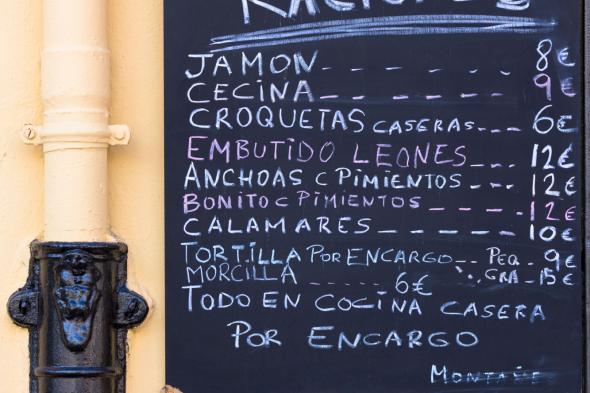 JAMON - - - - - 8€
CECINA - - - - - 9€
CROQUETAS CASERAS - - - 6€
EMBUTIDO LEONES - - - 12€
ANCHOAS C PIMIENTOS - - - 12€
BONITO C PIMIENTOS - - - - - 12€
CALAMARES - - - - - 10€
TORTILLA POR ENCARGO - - PEQ. - 9€
GRA - 15€
MORCILLA - - - - - 6€
TODO EN COCINA CASERA
POR ENCARGO